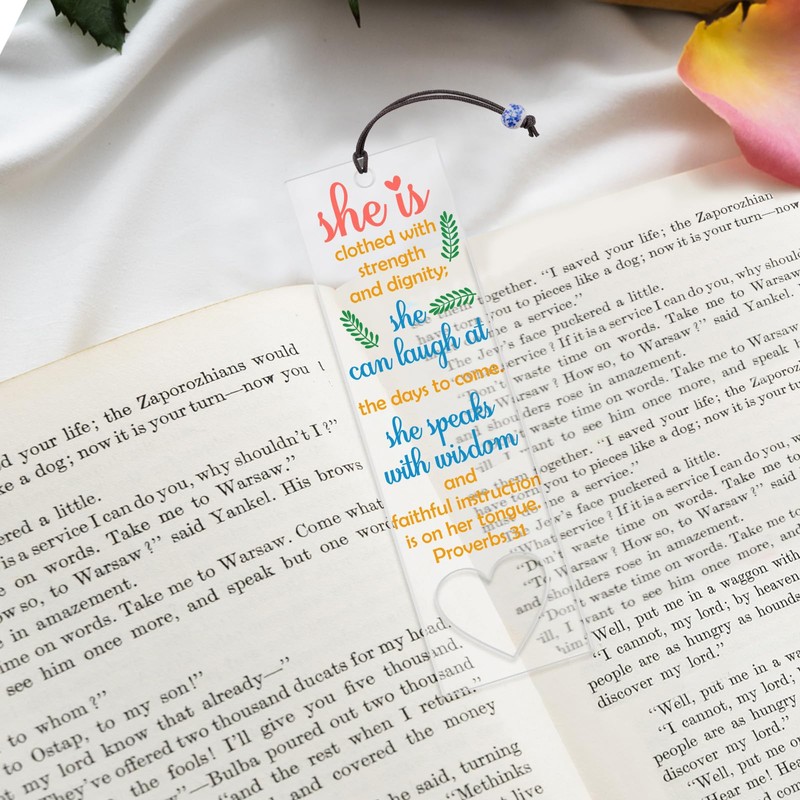 she is
clothed with
strength
and dignity;
she
can laugh at
the days to come.
she speaks
with wisdom
and
faithful instruction
is on her tongue.
Proverbs 31
d your life; the Zaporozhians would
ke a dog; now it is your turn—now you
ered a little.
is a service I can do you, why shouldn't I?"
e on words. Take me to Warsaw."
ow so, to Warsaw?" said Yankel. His brows
in amazement.
me on words. Take me to Warsaw. Come what
see him once more, and speak but one word
to whom?"
to Ostap, to my son!"
t my lord know that already—"
They've offered two thousand ducats for my head.
the fools! I'll give you five thousand.
"—Bulba poured out two thousand
"and the rest when I return."
and covered the money
he said, turning
"Methinks
t live
together. "I saved your life; the Zaporozhian
you to pieces like a dog; now it is your turn—now
me a service."
The Jew's face puckered a little.
service? If it is a service I can do you, why should
"Don't waste time on words. Take me to Warsaw
Warsaw? How so, to Warsaw?" said Yankel.
shoulders rose in amazement.
"Don't waste time on words. Take me to Warsaw
ill, I want to see him once more, and speak b
together. "I saved your life; the Zaporozh
you to pieces like a dog; now it is your turn
me a service."
Jew's face puckered a little.
"What service? If it is a service I can do you, w
"Don't waste time on words. Take me to
"To Warsaw? How so, to Warsaw?" said
and shoulders rose in amazement.
"Don't waste time on words. Take me
ill, I want to see him once more, an
him.
Well, put me in a waggon with
"I cannot, my lord; by heaven
people are as hungry as hounds
discover my lord."
"Well, put me in a wa
"I cannot, my lord;
people are as hungry
discover my lord."
"Well, put me o
"Hear me! Hear